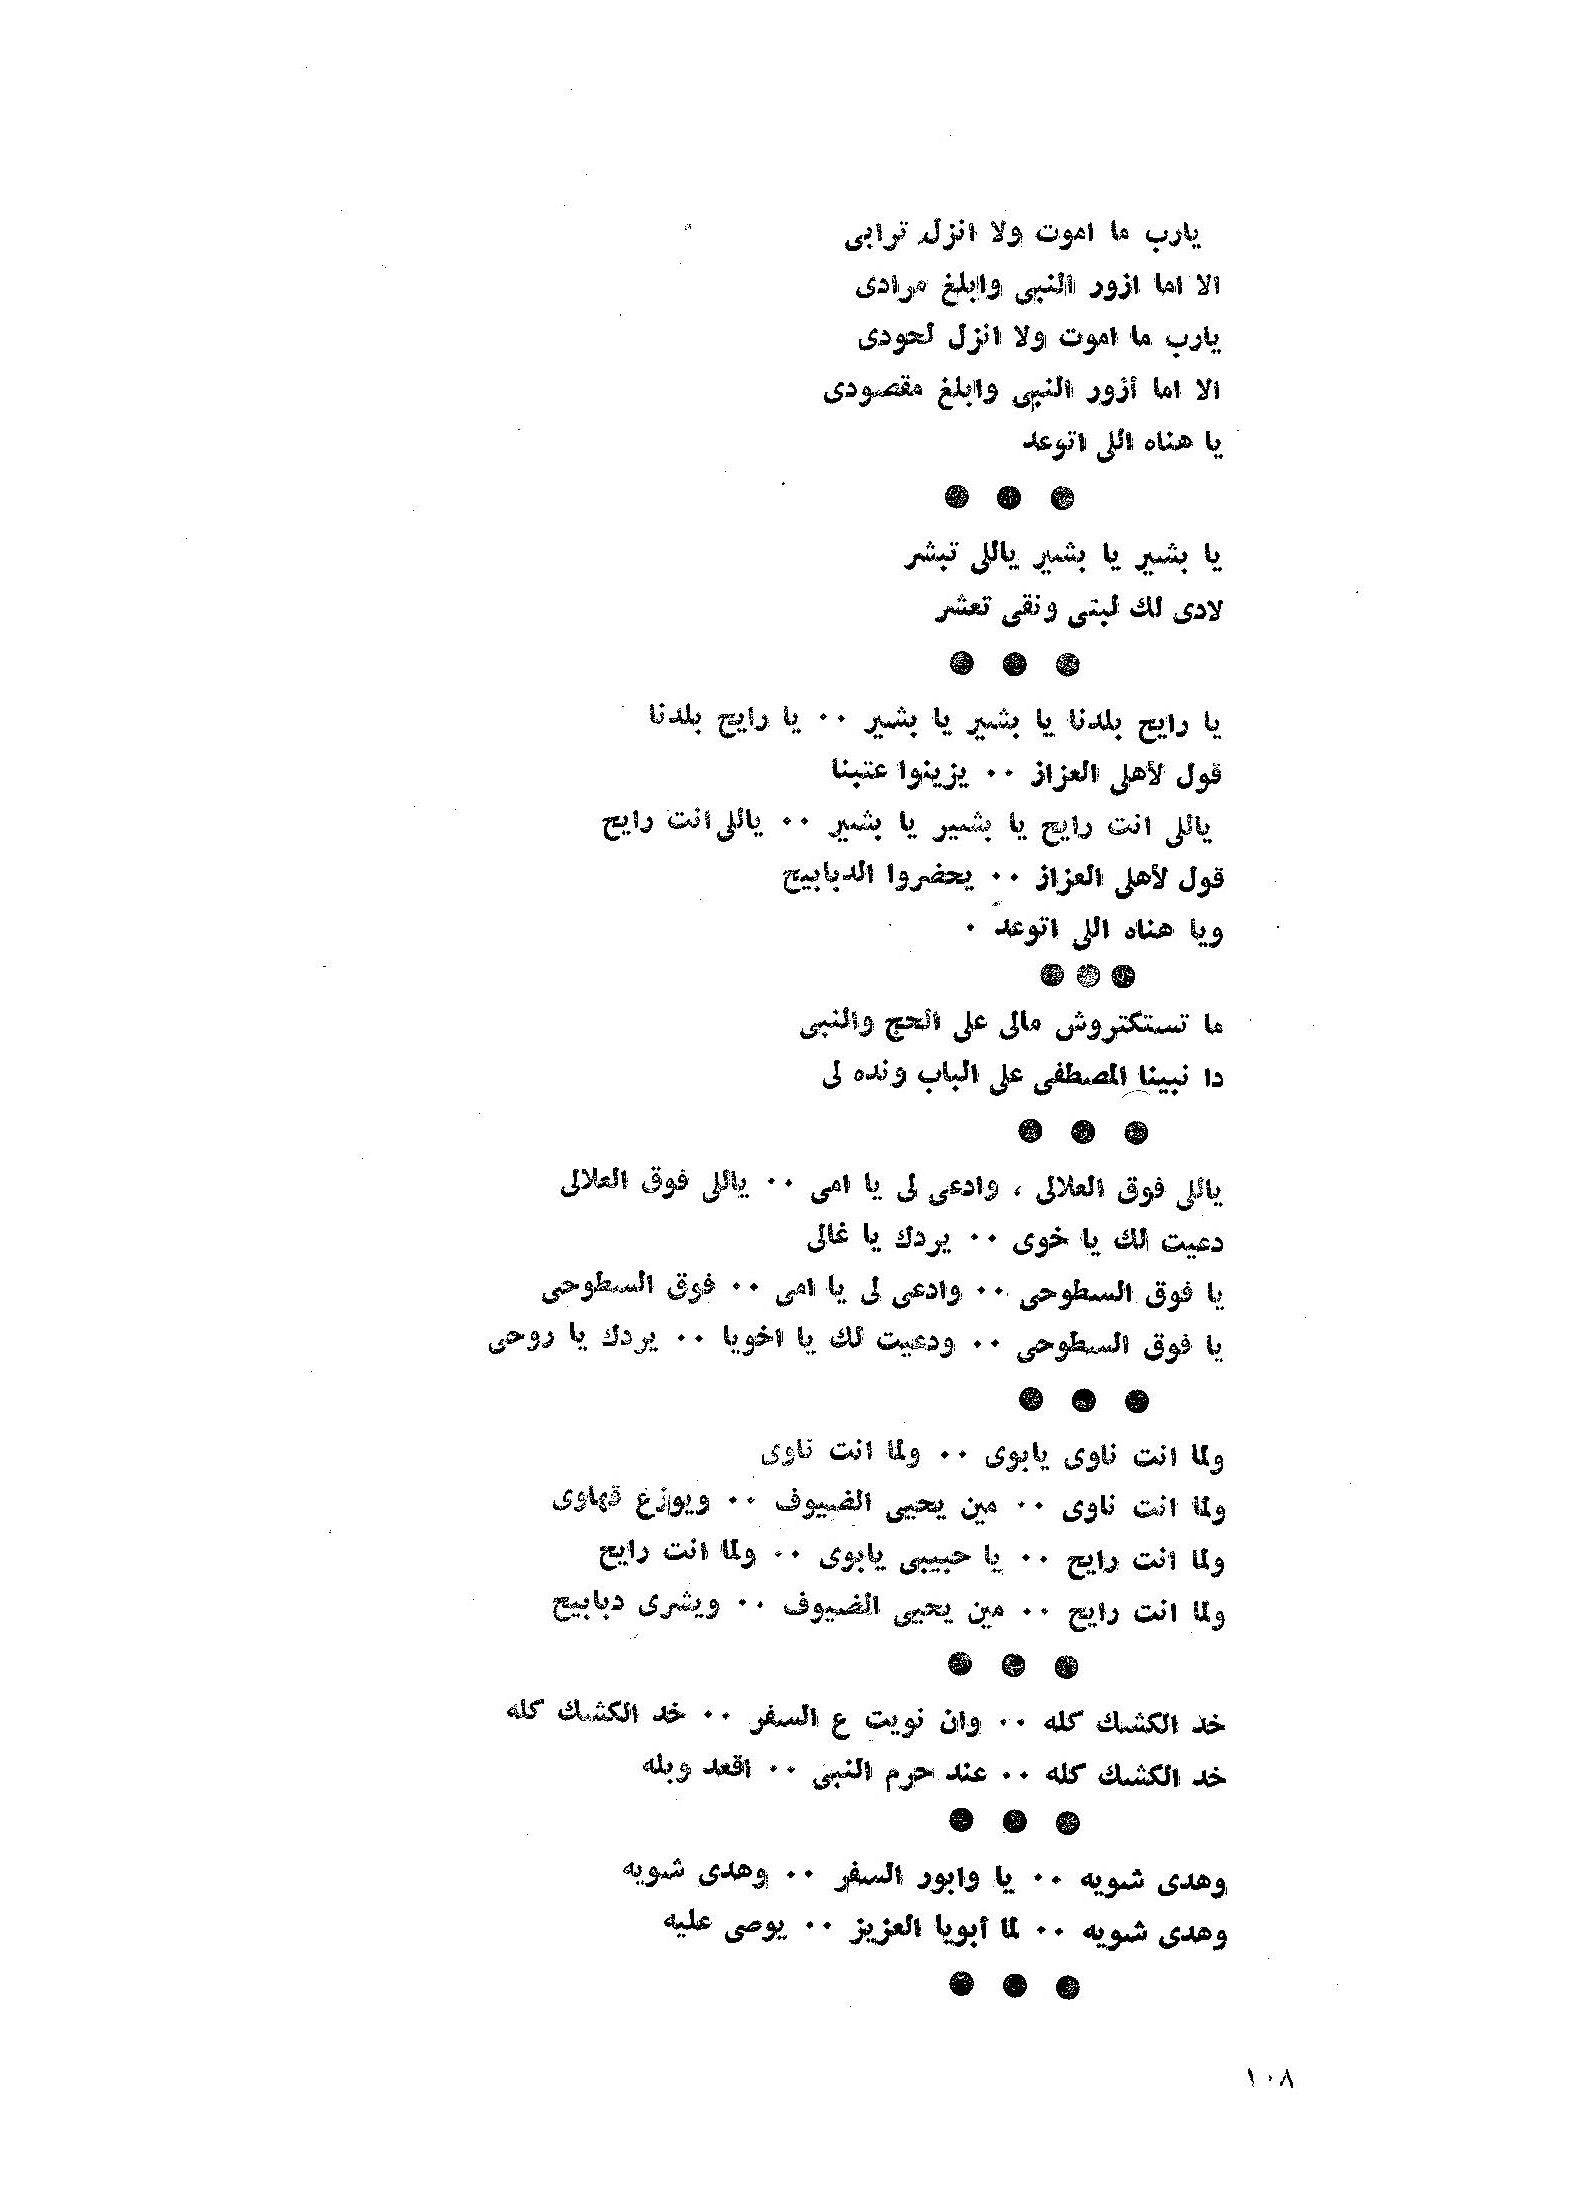 يارب ما اموت ولا انزل ترابى
الا اما ازور النبى وابلغ مرادى
يارب ما اموت ولا انزل لحودى
الا اما أزور النبى وابلغ مقصودى
يا هناه اللى اتوعد
● ● ●
يا بشير يا بشير ياللى تبشر
لادى لك لبتى ونقى تعشر
● ● ●
يا رايح بلدنا يا بشير يا بشير ٠٠ يا رايح بلدنا
قول لأهلى العزاز ٠٠ يزينوا عتبنا
ياللى انت رايح يا بشير يا بشير ٠٠ ياللى انت رايح
قول لأهلى العزاز ٠٠ يحضروا الدبابيح
ويا هناه اللى اتوعد ٠
● ● ●
ما تستكتروش مالى على الحج والنبى
دا نبينا المصطفى على الباب ونده لى
● ● ●
ياللى فوق العلالى ، وادعى لى يا امى ٠٠ ياللى فوق العلالى
دعيت لك يا خوى ٠٠ يردك يا غالى
يا فوق السطوحى ٠٠ وادعى لى يا امى ٠٠ فوق السطوحى
يا فوق السطوحى ٠٠ ودعيت لك يا اخويا ٠٠ يردك يا روحى
● ● ●
ولما انت ناوى يابوى ٠٠ ولما انت ناوى
ولما انت ناوى ٠٠ مين يحيى الضيوف ٠٠ ويوزع قهاوى
ولما انت رايح ٠٠ يا حبيبى يابوى ٠٠ ولما انت رايح
ولما انت رايح ٠٠ مين يحيى الضيوف ٠٠ ويشرى دبابيح
● ● ●
خد الكشك كله ٠٠ وان نويت ع السفر ٠٠ خد الكشك كله
خد الكشك كله ٠٠ عند حرم النبى ٠٠ اقعد وبله
● ● ●
وهدى شويه ٠٠ يا وابور السفر ٠٠ وهدى شويه
وهدى شويه ٠٠ لما أبويا العزيز ٠٠ يوصى عليه
● ● ●
١٠٨